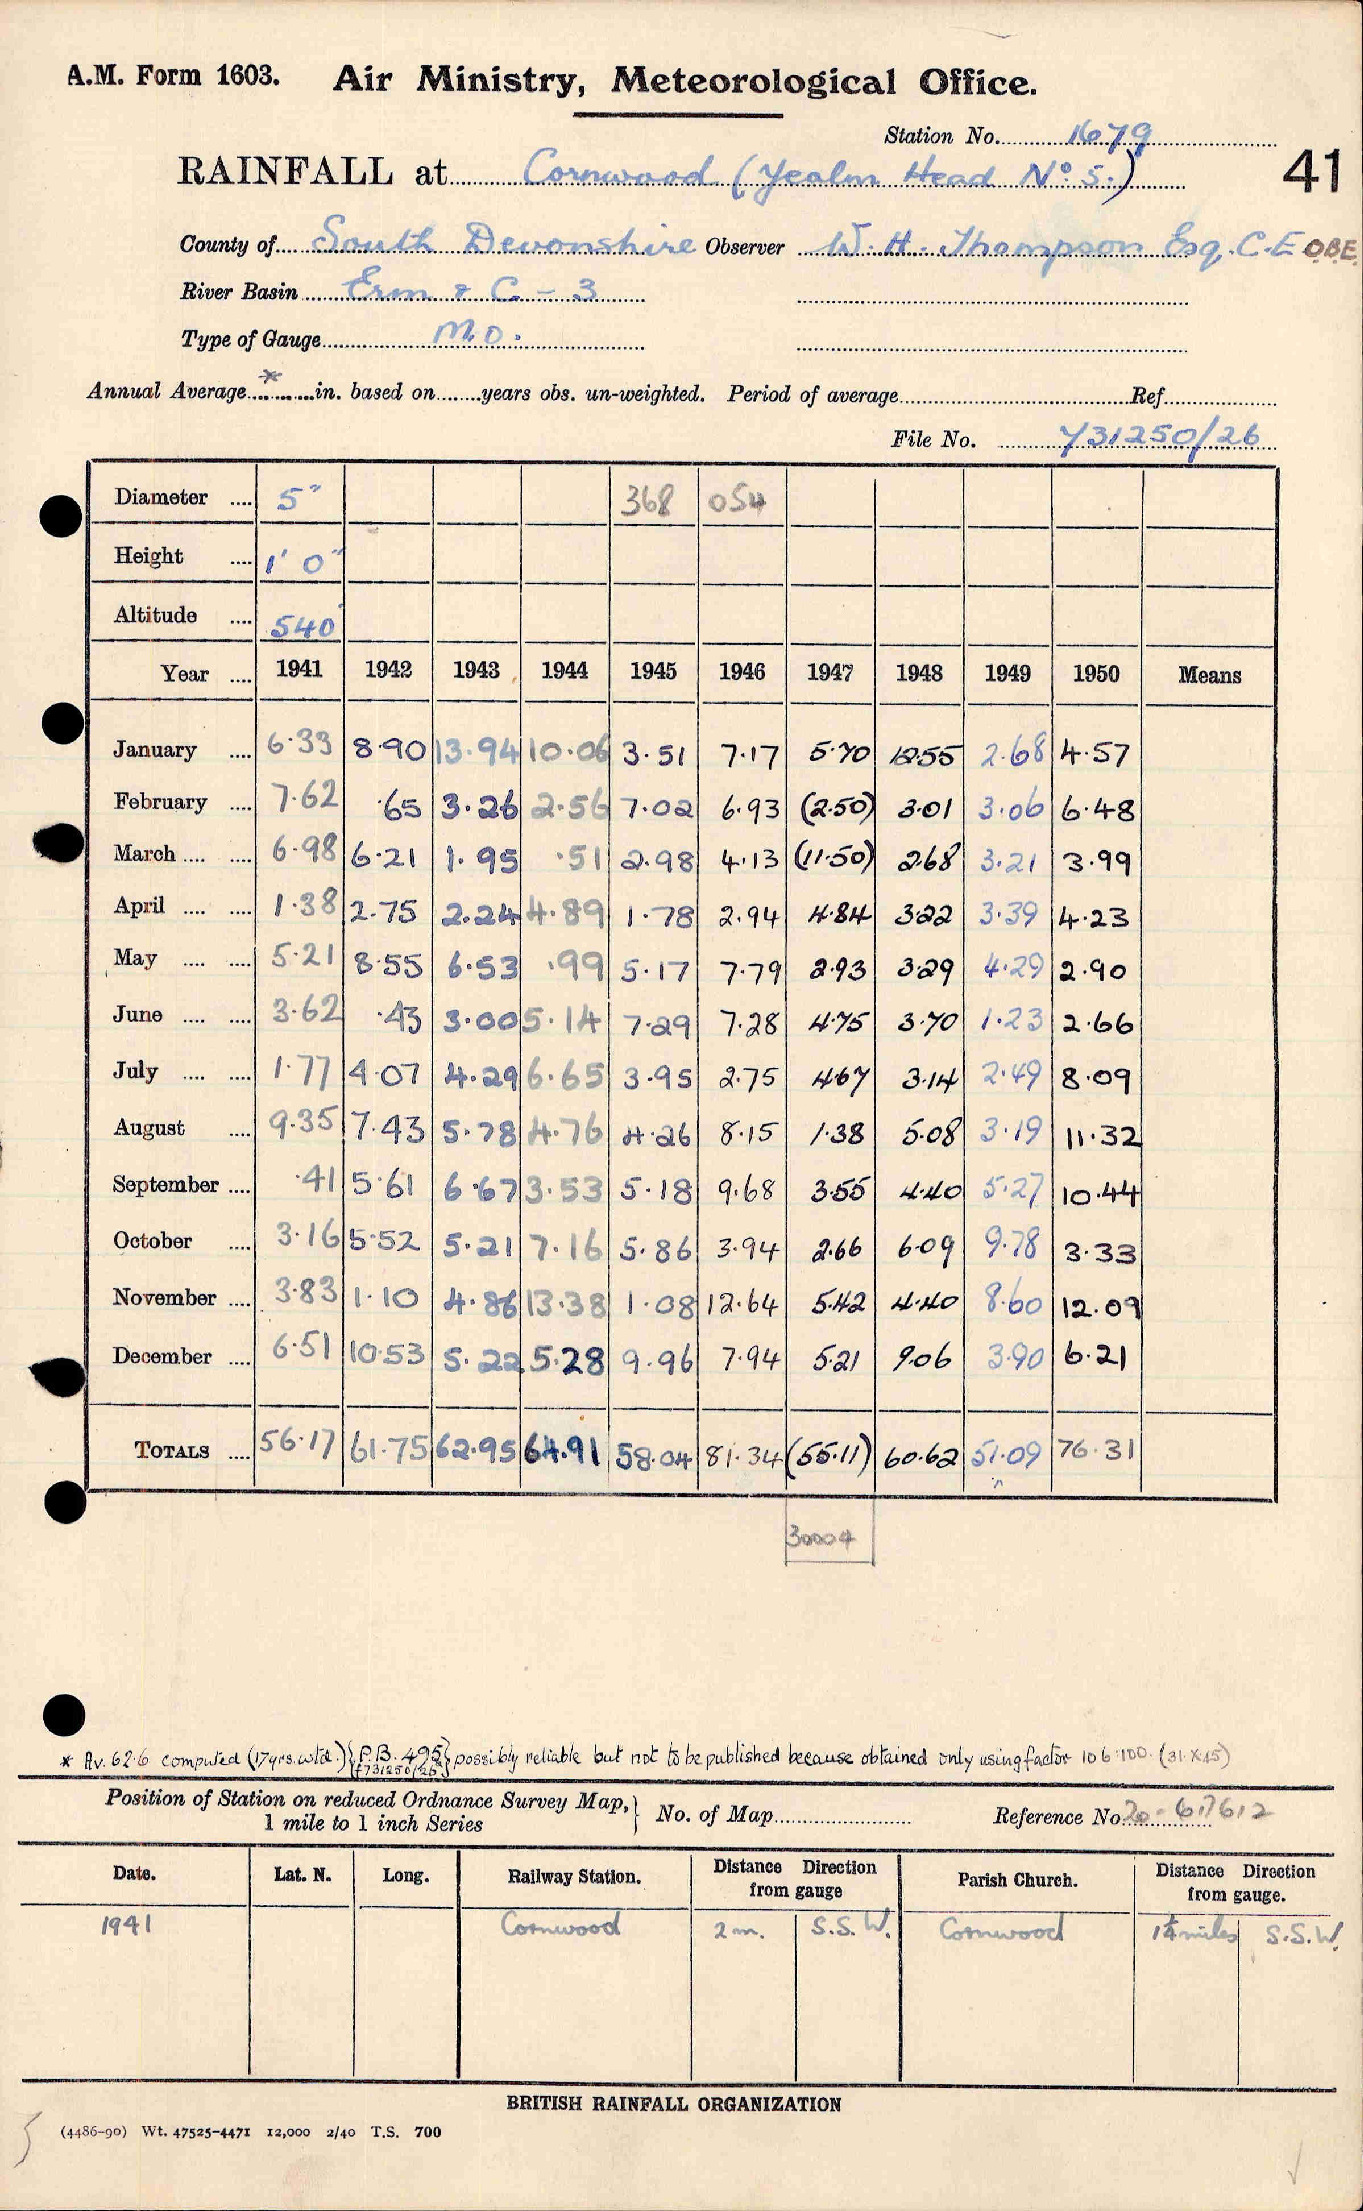 A.M. Form 1603. Air Ministry, Meteorological Office.
Station No. 1679
RAINFALL at Cornwood (Yealm Head No. 5.) 41
County of South Devonshire Observer W. H. Thompson Esq. C.E OBE
River Basin Erm & C - 3
Type of Gauge M.O.
Annual Average * in. based on years obs. un-weighted. Period of average Ref
File No. 731250/26
Diameter 5" 368 054
Height 1' 0"
Altitude 540'
Year 1941 1942 1943 1944 1945 1946 1947 1948 1949 1950 Means
January 6.33 8.90 13.94 10.06 3.51 7.17 5.70 12.55 2.68 4.57
February 7.62 .65 3.26 2.56 7.02 6.93 (2.50) 3.01 3.06 6.48
March 6.98 6.21 1.95 .51 2.98 4.13 (11.50) 2.68 3.21 3.99
April 1.38 2.75 2.24 4.89 1.78 2.94 4.84 3.22 3.39 4.23
May 5.21 8.55 6.53 .99 5.17 7.79 2.93 3.29 4.29 2.90
June 3.62 .43 3.00 5.14 7.29 7.28 4.75 3.70 1.23 2.66
July 1.77 4.07 4.29 6.65 3.95 2.75 4.67 3.14 2.49 8.09
August 9.35 7.43 5.78 4.76 4.26 8.15 1.38 5.08 3.19 11.32
September .41 5.61 6.67 3.53 5.18 9.68 3.55 4.40 5.27 10.44
October 3.16 5.52 5.21 7.16 5.86 3.94 2.66 6.09 9.78 3.33
November 3.83 1.10 4.86 13.38 1.08 12.64 5.42 4.40 8.60 12.09
December 6.51 10.53 5.22 5.28 9.96 7.94 5.21 9.06 3.90 6.21
TOTALS 56.17 61.75 62.95 64.91 58.04 81.34 (55.11) 60.62 51.09 76.31
30004
* Av. 62.6 computed (17 yrs. wtd.) {P.B. 495 / F731250/26} possibly reliable but not to be published because obtained only using factor 106:100. (31.X.45)
Position of Station on reduced Ordnance Survey Map, } No. of Map Reference No. 20-617612
1 mile to 1 inch Series
Date. Lat. N. Long. Railway Station. Distance Direction from gauge Parish Church. Distance Direction from gauge.
1941 Cornwood 2 m. S.S.W. Cornwood 1¼ miles S.S.W.
BRITISH RAINFALL ORGANIZATION
(4486-90) Wt. 47525-4471 12,000 2/40 T.S. 700